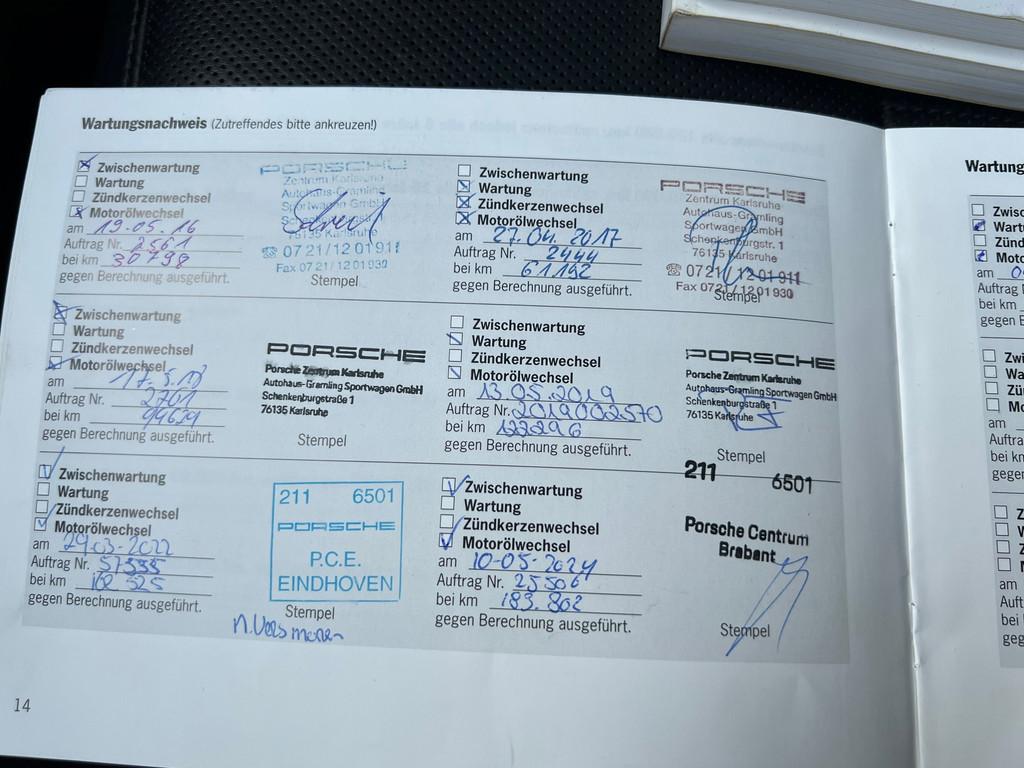 Wartungsnachweis (Zutreffendes bitte ankreuzen!)
Zwischenwartung
Wartung
Zündkerzenwechsel
Motorölwechsel
am 19.05.16
Auftrag Nr. 2561
bei km 30798
gegen Berechnung ausgeführt.
PORSCHE
Zentrum Karlsruhe
Autohaus-Gramling
Sportwagen GmbH
76135 Karlsruhe
☎ 07 21/12 01 911
Fax 07 21/12 01 930
Stempel
Zwischenwartung
Wartung
Zündkerzenwechsel
Motorölwechsel
am 27.04.2017
Auftrag Nr. 2444
bei km 61142
gegen Berechnung ausgeführt.
PORSCHE
Zentrum Karlsruhe
Autohaus-Gramling
Sportwagen GmbH
Schenkenburgstr. 1
76135 Karlsruhe
☎ 07 21/12 01 911
Fax 07 21/12 01 930
Stempel
Zwischenwartung
Wartung
Zündkerzenwechsel
Motorölwechsel
am 17.5.18
Auftrag Nr. 2701
bei km
gegen Berechnung ausgeführt.
PORSCHE
Porsche Zentrum Karlsruhe
Autohaus-Gramling Sportwagen GmbH
Schenkenburgstraße 1
76135 Karlsruhe
Stempel
Zwischenwartung
Wartung
Zündkerzenwechsel
Motorölwechsel
am 13.05.2019
Auftrag Nr. 2019002570
bei km 122296
gegen Berechnung ausgeführt.
PORSCHE
Porsche Zentrum Karlsruhe
Autohaus-Gramling Sportwagen GmbH
Schenkenburgstraße 1
76135 Karlsruhe
Stempel
Zwischenwartung
Wartung
Zündkerzenwechsel
Motorölwechsel
am 29-03-2022
Auftrag Nr. 57555
bei km 162 525
gegen Berechnung ausgeführt.
211 6501
PORSCHE
P.C.E.
EINDHOVEN
Stempel
Zwischenwartung
Wartung
Zündkerzenwechsel
Motorölwechsel
am 10-05-2024
Auftrag Nr. 25506
bei km 183.802
gegen Berechnung ausgeführt.
211 6501
Porsche Centrum
Brabant
Stempel
14
Wartung